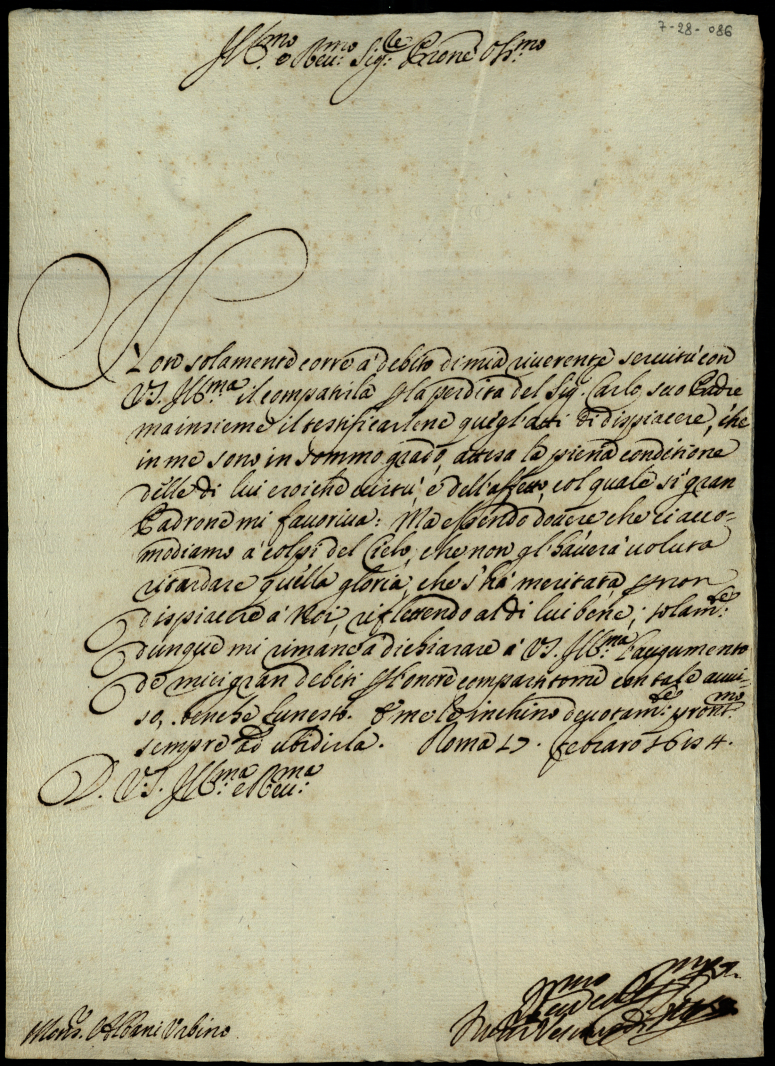 7-28-086
Ill.mo e Reu.mo Sig.re Prone Oss.mo
Non solamente corre à debito di mia riuerente seruitù con
VS. Ill.ma il compatirla p la perdita del Sig. Carlo, suo Padre
ma insieme il testificarlene quegl'atti di dispiacere, che
in me sono in sommo grado, attesa la piena conditione
delle di lui eroiche uirtù, e dell'affetto, col quale si gran
Padrone mi fauoriua: Ma essendo douere che ci acco-
modiamo à colpi del Cielo, che non gl'hauerà uoluta
ritardare quella gloria, che s'hà meritata, p non
dispiacere à Noi, riflettendo al di lui bene, solam.te
dunque mi rimane à dichiarare à VS. Ill.ma l'augumento
de miei gran debiti p l'onore compartitome con tale aui-
so, benche funesto. E me le inchino deuotam.te pront.mo
sempre ad ubidirla. Roma 17. febraro 1684.
D. V.S. Ill.ma e Reu.ma
Mons.r Albani Urbino